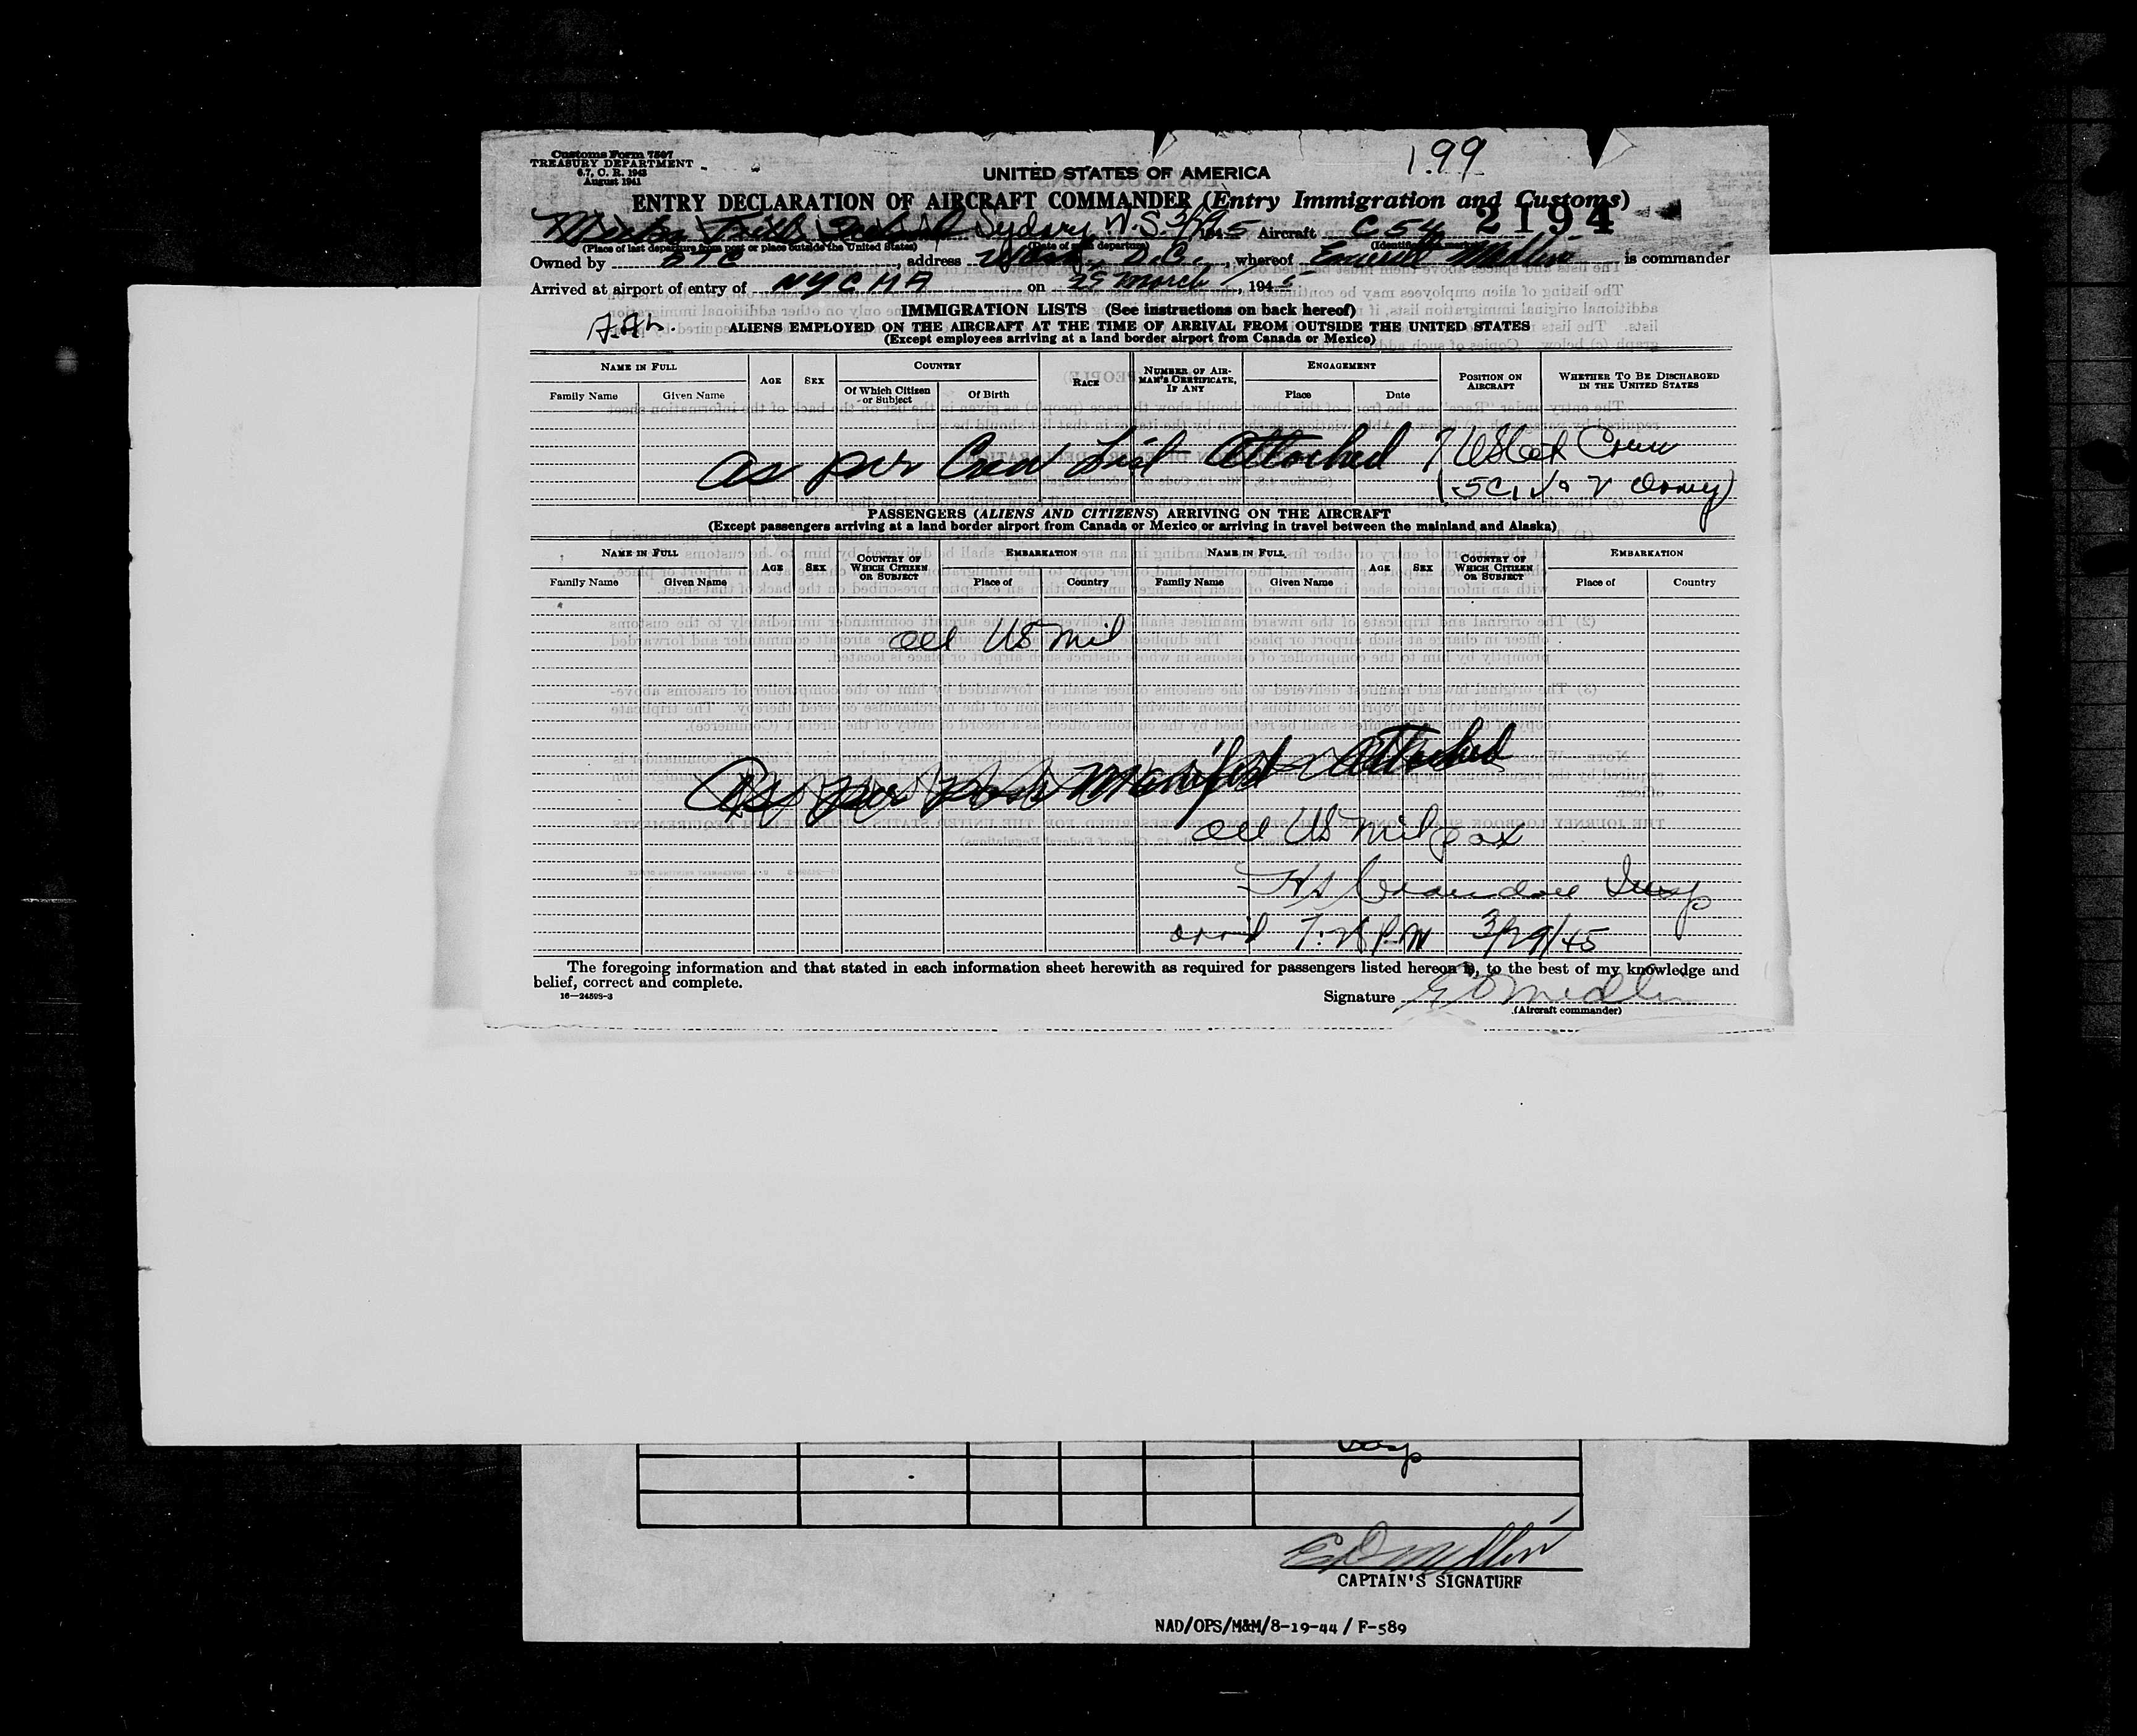 Customs Form 7507
TREASURY DEPARTMENT
6.7, C. R. 1943
August 1941
199
UNITED STATES OF AMERICA
ENTRY DECLARATION OF AIRCRAFT COMMANDER (Entry Immigration and Customs)
2194
Sydney N.S. 3/29 1945 Aircraft C 54
(Place of last departure from port or place outside the United States) (Date of such departure) (Identification mark)
Owned by ATC, address Wash. D.C., whereof Medlin is commander
Arrived at airport of entry of NYC on 29 March, 1945
IMMIGRATION LISTS (See instructions on back hereof)
ALIENS EMPLOYED ON THE AIRCRAFT AT THE TIME OF ARRIVAL FROM OUTSIDE THE UNITED STATES
(Except employees arriving at a land border airport from Canada or Mexico)
NAME IN FULL AGE SEX COUNTRY RACE NUMBER OF AIRMAN'S CERTIFICATE, IF ANY ENGAGEMENT POSITION ON AIRCRAFT WHETHER TO BE DISCHARGED IN THE UNITED STATES
Family Name Given Name Of Which Citizen or Subject Of Birth Place Date
as per Crew List Attached 7 Crew
PASSENGERS (ALIENS AND CITIZENS) ARRIVING ON THE AIRCRAFT
(Except passengers arriving at a land border airport from Canada or Mexico or arriving in travel between the mainland and Alaska)
NAME IN FULL AGE SEX COUNTRY OF WHICH CITIZEN OR SUBJECT EMBARKATION NAME IN FULL AGE SEX COUNTRY OF WHICH CITIZEN OR SUBJECT EMBARKATION
Family Name Given Name Place of Country Family Name Given Name Place of Country
all US Mil
As per Manifest Attached
all US Mil pax
Insp
arr'd 7:28 P.M 3/29/45
The foregoing information and that stated in each information sheet herewith as required for passengers listed hereon is, to the best of my knowledge and
belief, correct and complete.
16—24598-3
Signature E D Medlin
(Aircraft commander)
Insp
E D Medlin
CAPTAIN'S SIGNATURE
NAD/OPS/M&M/8-19-44 / F-589